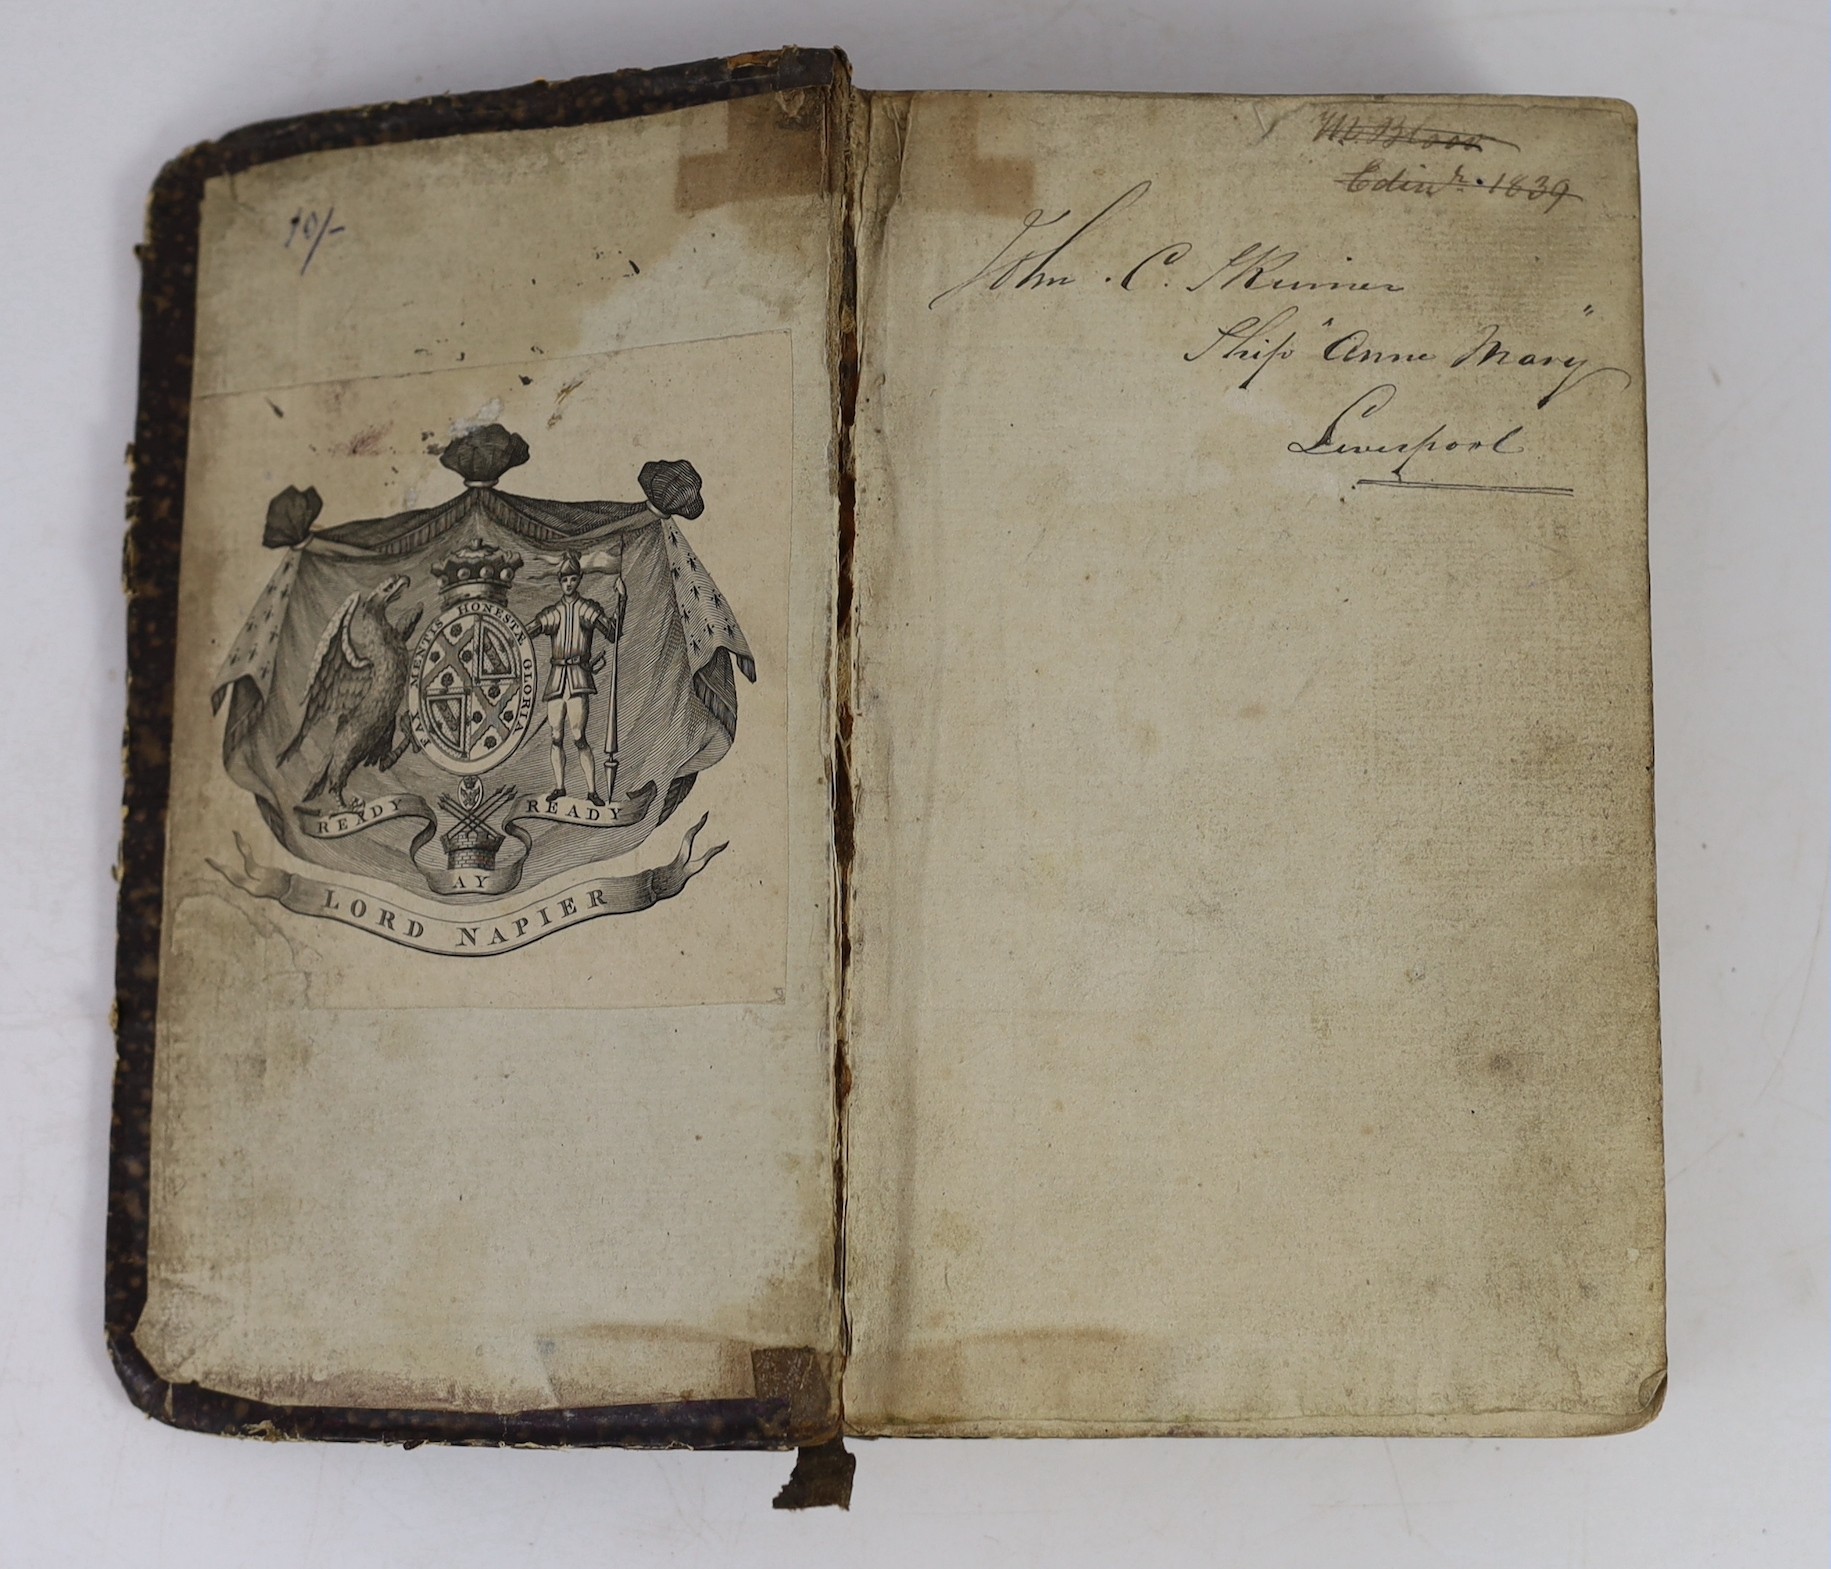 10/-
FAY MENTIS HONESTÆ GLORIA
READY
READY
AY
LORD NAPIER
Edinr. 1839
John . C. Skinner
Ship "Anne Mary"
Liverpool